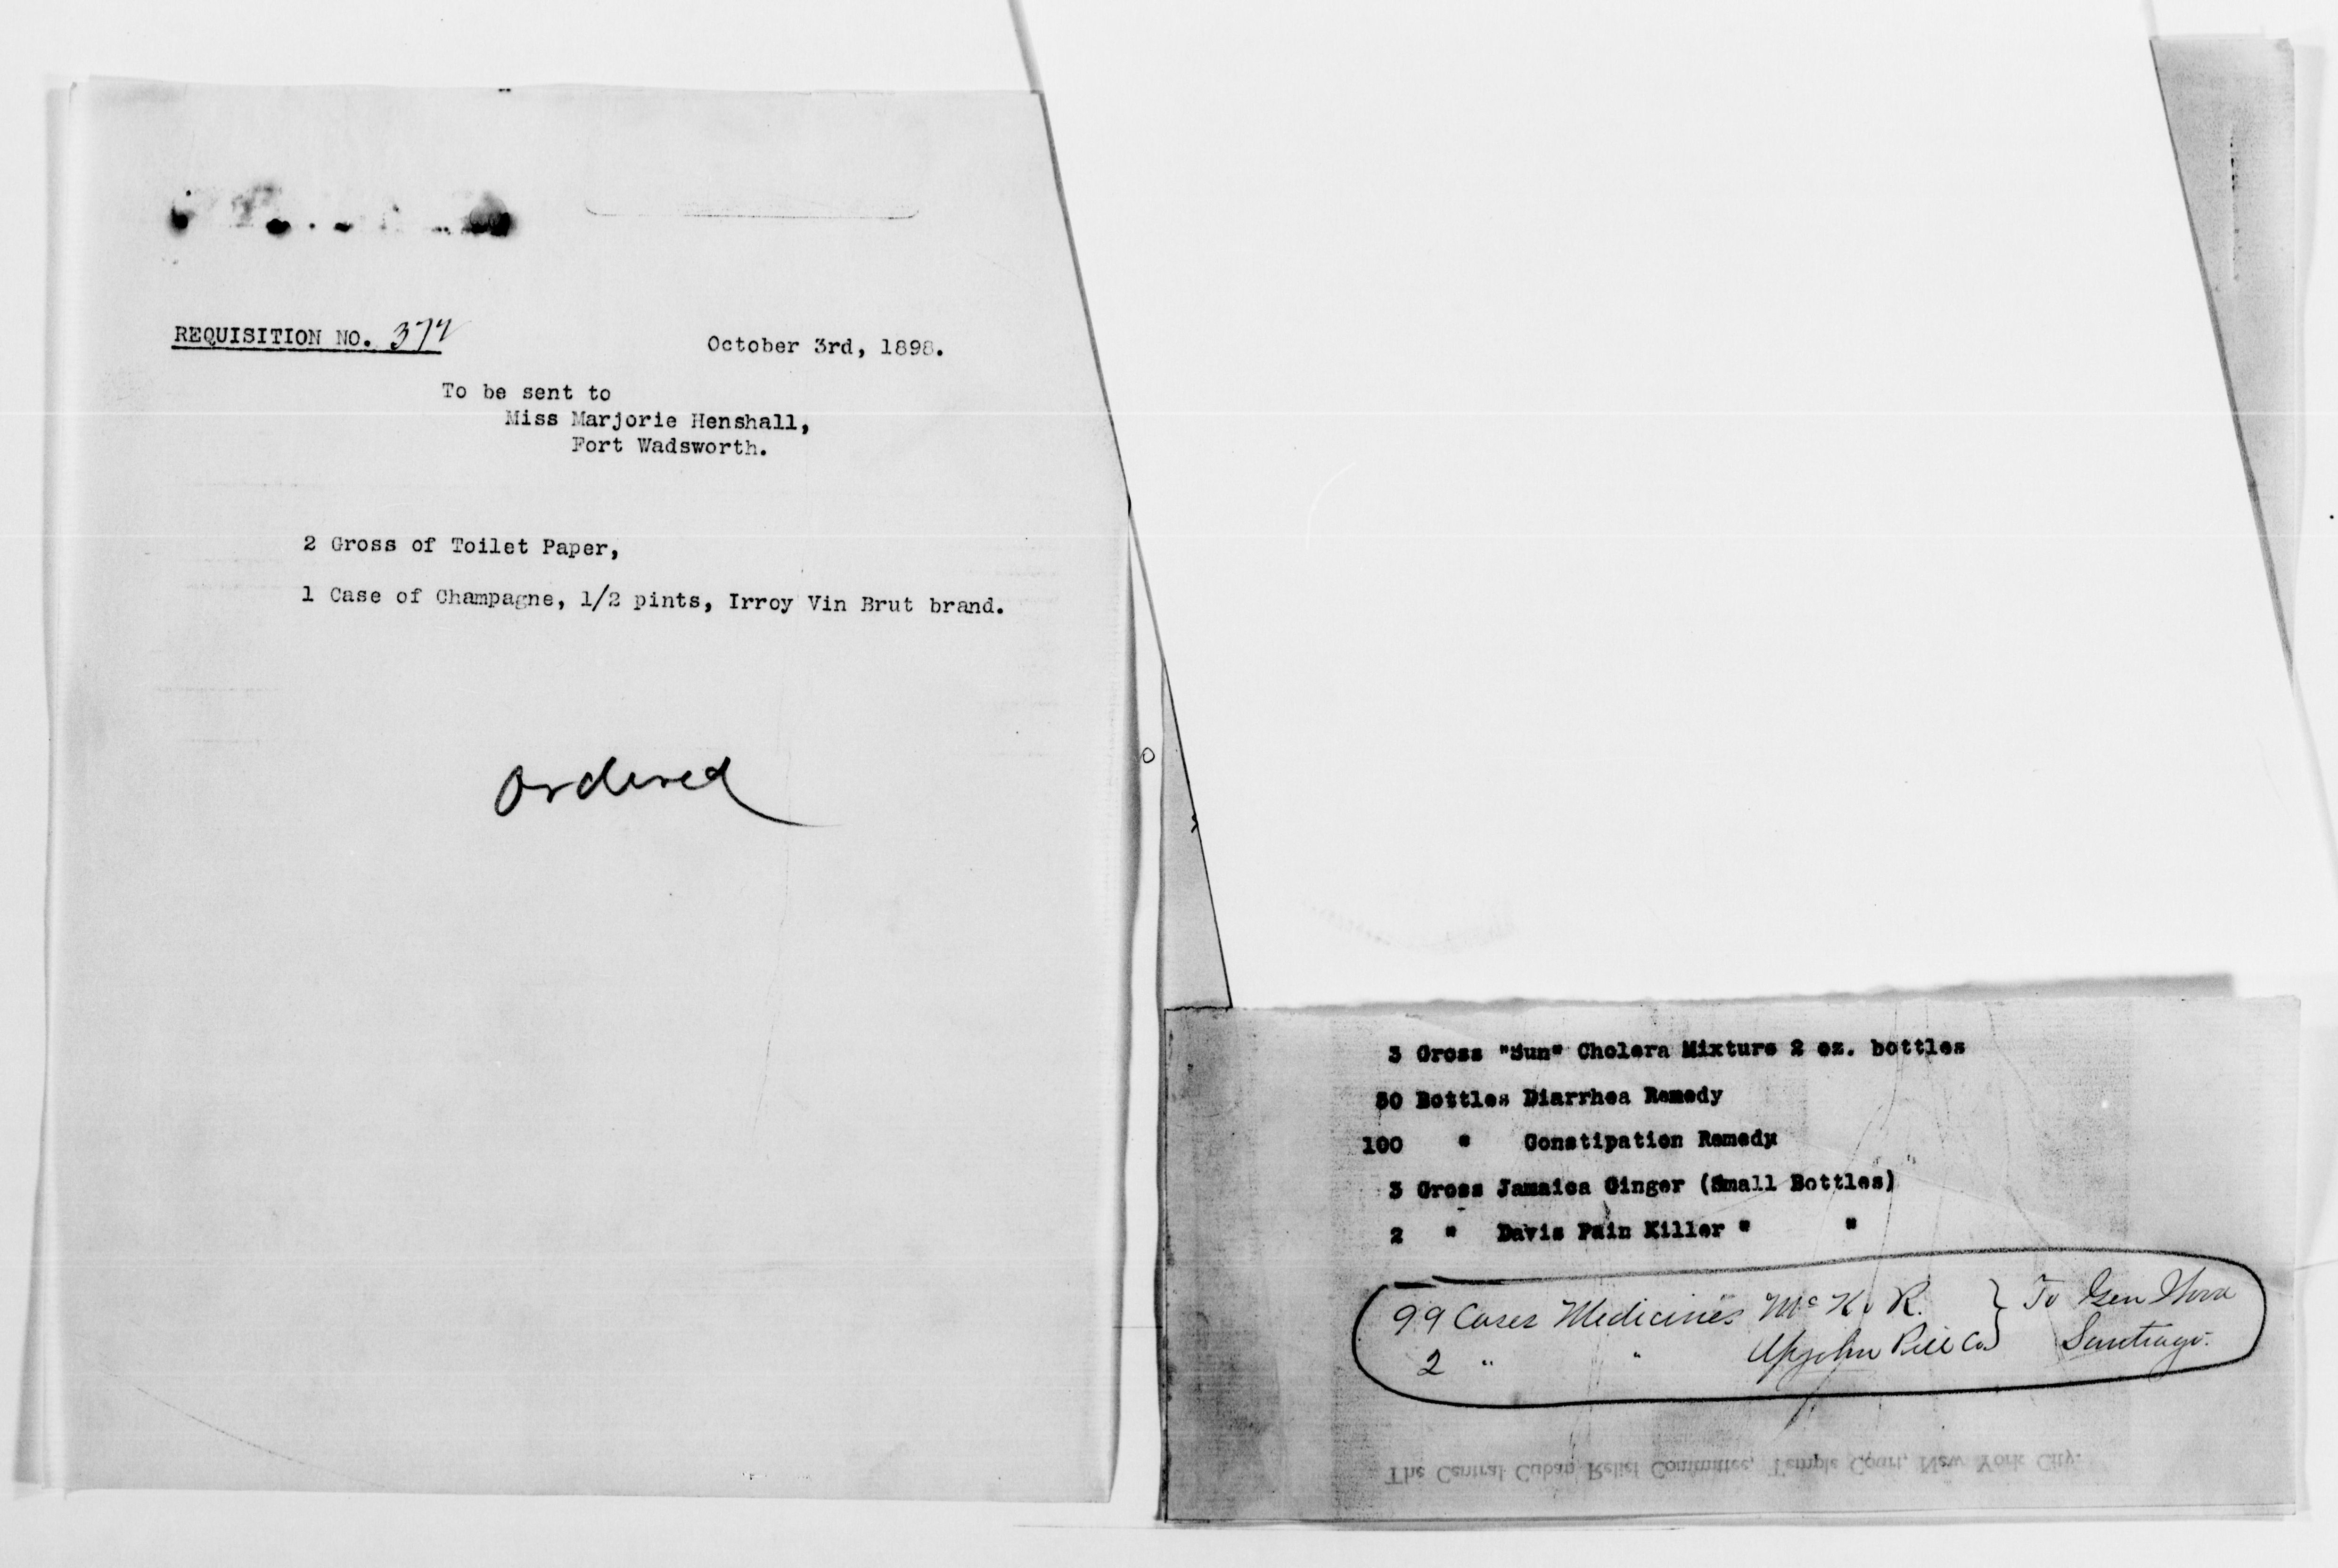 REQUISITION NO. 372
October 3rd, 1898.
To be sent to
Miss Marjorie Henshall,
Fort Wadsworth.
2 Gross of Toilet Paper,
1 Case of Champagne, 1/2 pints, Irroy Vin Brut brand.
Ordered
3 Gross "Sun" Cholera Mixture 2 oz. bottles
50 Bottles Diarrhea Remedy
100 " Constipation Remedy
3 Gross Jamaica Ginger (Small Bottles)
2 " Davis Pain Killer " "
99 Cases Medicines McK & R. } To Gen Wood
2 " " Upjohn Pill Co } Santiago.
The Central Cuban Relief Committee, Temple Court, New York City.